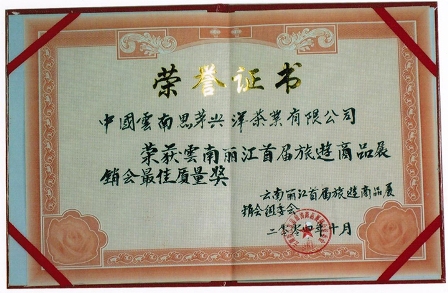 荣誉证书
中國雲南思茅兴洋茶業有限公司
荣获雲南丽江首届旅遊商品展
銷会最佳质量獎
云南丽江首届旅遊商品展
銷会组委会
二零零四年十月